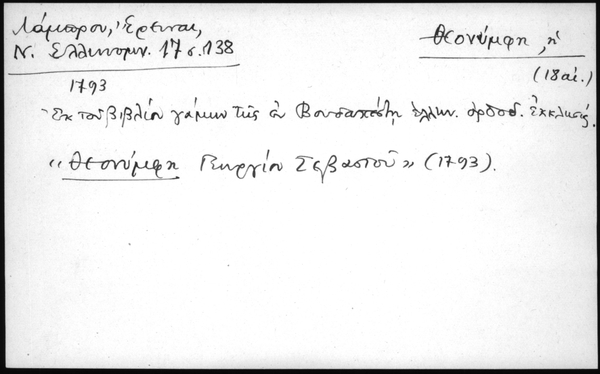 Λάμπρου, Ἔρευναι,
Ν. Ἑλληνομν. 17 σ. 138
Θεονύμφη, ἡ
(18 αἰ.)
1793
Ἐκ τοῦ βιβλίου γάμων τῆς ἐν Βουδαπέστῃ ἑλλην. ὀρθοδ. Ἐκκλησίας.
"Θεονύμφη Γεωργίου Σεβαστοῦ" (1793).